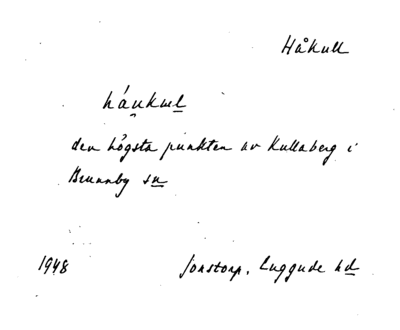 Håkull
háu̯kul
den högsta punkten av Kullaberg i
Brunnby sn
1948 Jonstorp, Luggude hd